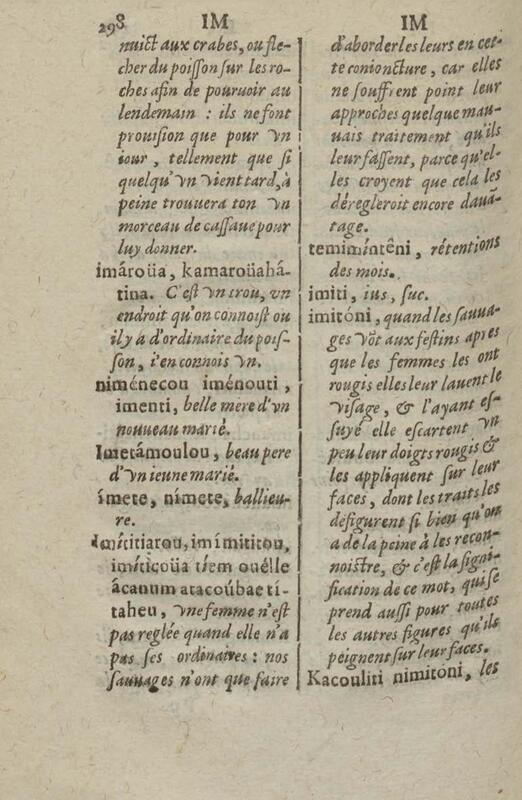 298 IM IM
nuict aux crabes, ou fle-
cher du poiſſon ſur les ro-
ches afin de pouruoir au
lendemain : ils ne font
prouiſion que pour vn
iour, tellement que ſi
quelqu'vn vient tard, à
peine trouuera ton vn
morceau de caſſaue pour
luy donner.
imároüa, kamaroüahá-
tina. C'eſt vn trou, vn
endroit qu'on connoiſt ou
il y a d'ordinaire du poiſ-
ſon, i'en connois vn.
niménecou iménouti,
imenti, belle mere d'vn
nouueau marié.
Imetámoulou, beau pere
d'vn ieune marié.
ímete, nímete, ballieu-
re.
Imítitiarou, imímititou,
imíticoüa tíem ouélle
ácanum atacoúbae tí-
taheu, vne femme n'eſt
pas reglée quand elle n'a
pas ſes ordinaires : nos
ſauuages n'ont que faire
d'aborder les leurs en cet-
te conioncture, car elles
ne ſouffrent point leur
approches quelque mau-
uais traitement qu'ils
leur faſſent, parce qu'el-
les croyent que cela les
déregleroit encore dauã-
tage.
temimíntêni, rétentions
des mois.
imiti, ius, ſuc.
imitóni, quand les ſauua-
ges võt aux feſtins apres
que les femmes les ont
rougis elles leur lauent le
viſage, & l'ayant eſ-
ſuyé elle eſcartent vn
peu leur doigts rougis &
les appliquent ſur leur
faces, dont les traits les
défigurent ſi bien qu'on
a de la peine à les recon-
noiſtre, & c'eſt la ſigni-
fication de ce mot, qui ſe
prend auſſi pour toutes
les autres figures qu'ils
peignent ſur leur faces.
Kacouliti nimitoni, les